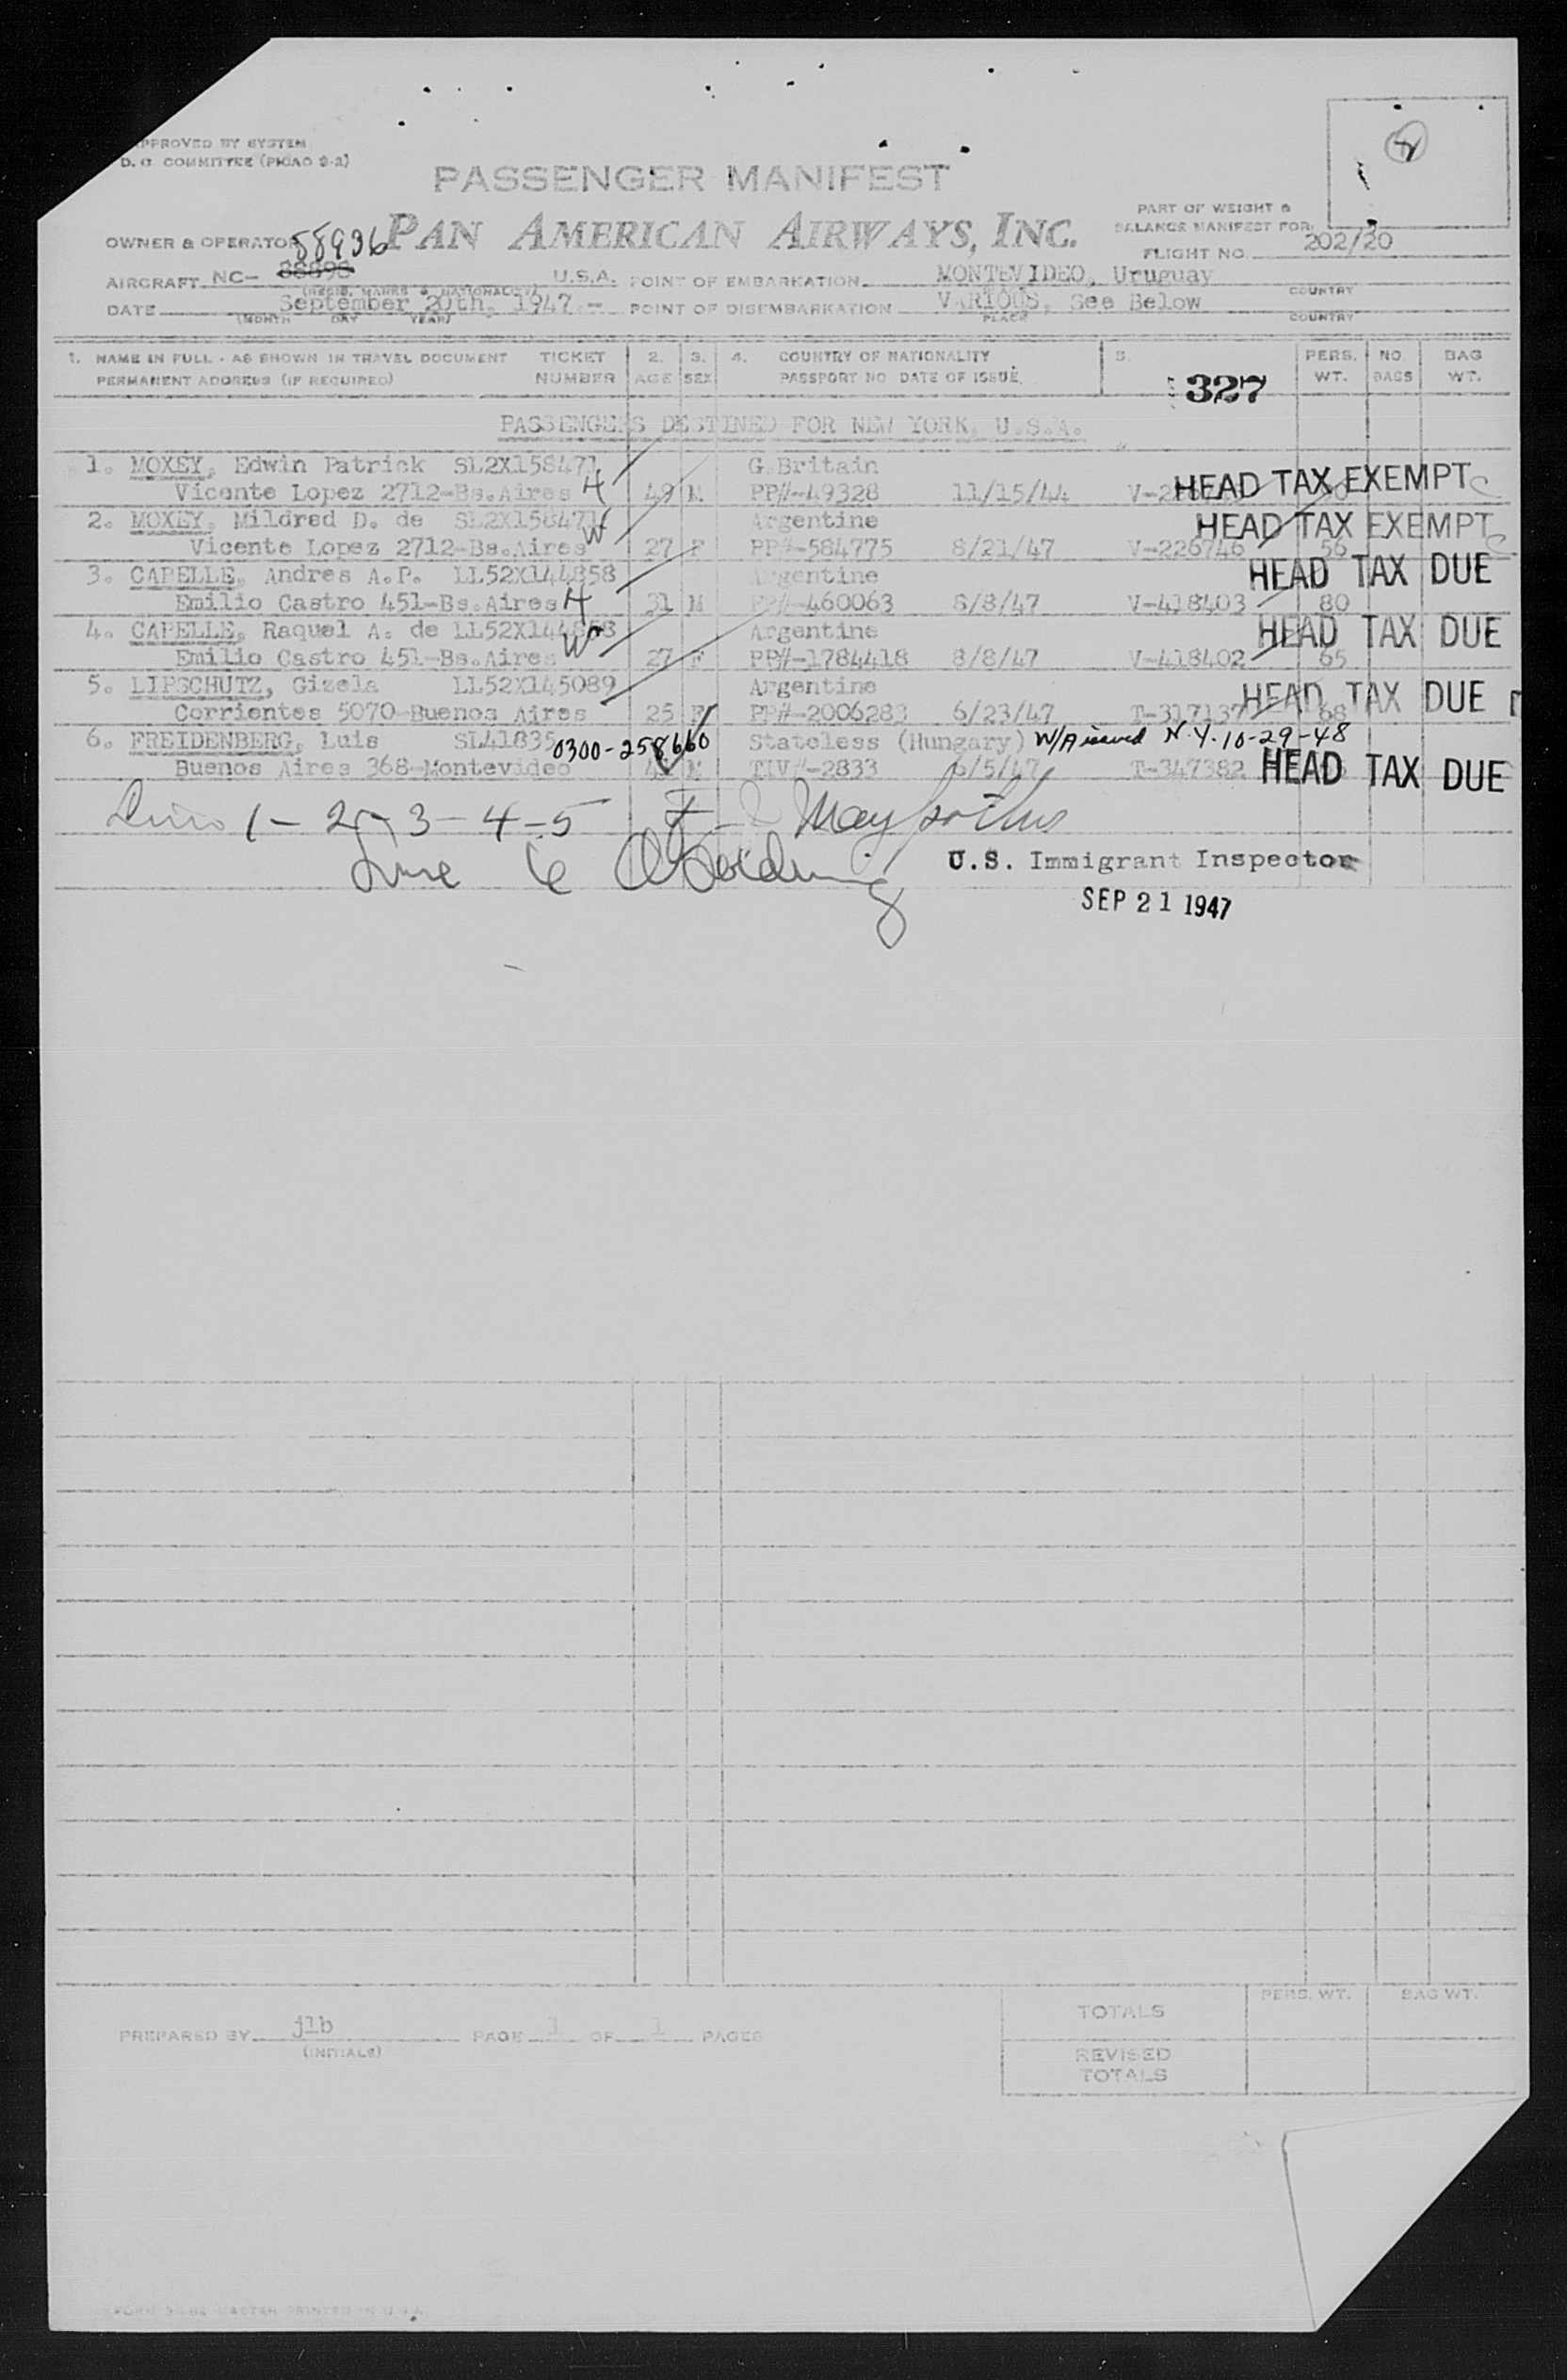 APPROVED BY SYSTEM
D. C. COMMITTEE (PICAO 9-2)
PASSENGER MANIFEST
PART OF WEIGHT &
BALANCE MANIFEST FOR
OWNER & OPERATOR PAN AMERICAN AIRWAYS, INC.
FLIGHT NO. 202/20
88936
AIRCRAFT NC- U.S.A. POINT OF EMBARKATION MONTEVIDEO, Uruguay
(REGIS. MARKS & NATIONALITY) COUNTRY
DATE September 20th, 1947.- POINT OF DISEMBARKATION VARIOUS, See Below
(MONTH DAY YEAR) PLACE COUNTRY
1. NAME IN FULL - AS SHOWN IN TRAVEL DOCUMENT TICKET 2. 3. 4. COUNTRY OF NATIONALITY 5. PERS. NO. BAG
PERMANENT ADDRESS (IF REQUIRED) NUMBER AGE SEX PASSPORT NO. DATE OF ISSUE. WT. BAGS WT.
327
PASSENGERS DESTINED FOR NEW YORK, U.S.A.
1. MOXEY, Edwin Patrick SL2X158471 G.Britain
Vicente Lopez 2712-Bs.Aires H 49 M PP#-49328 11/15/44 HEAD TAX EXEMPT
2. MOXEY, Mildred D. de SL2X158471 Argentine HEAD TAX EXEMPT
Vicente Lopez 2712-Bs.Aires W 27 F PP#-584775 8/21/47 V-226746 56
3. CAPELLE, Andres A.P. LL52X144858 Argentine HEAD TAX DUE
Emilio Castro 451-Bs.Aires H 31 M PP#-460063 8/8/47 V-418403 80
4. CAPELLE, Raquel A. de LL52X144858 Argentine HEAD TAX DUE
Emilio Castro 451-Bs.Aires W 27 F PP#-1784418 8/8/47 V-418402 65
5. LIPSCHUTZ, Gizela LL52X145089 Argentine HEAD TAX DUE
Corrientes 5070-Buenos Aires 25 F PP#-2006283 6/23/47 T-317137 68
6. FREIDENBERG, Luis SL41835 0300-258660 Stateless (Hungary) W/A issued N.Y. 10-29-48
Buenos Aires 368-Montevideo M TIV#-2833 6/5/47 T-347382 HEAD TAX DUE
1 - 2 - 3 - 4 - 5
U.S. Immigrant Inspector
SEP 21 1947
PREPARED BY jlb PAGE 1 OF 1 PAGES
(INITIALS)
TOTALS PERS. WT. BAG WT.
REVISED
TOTALS